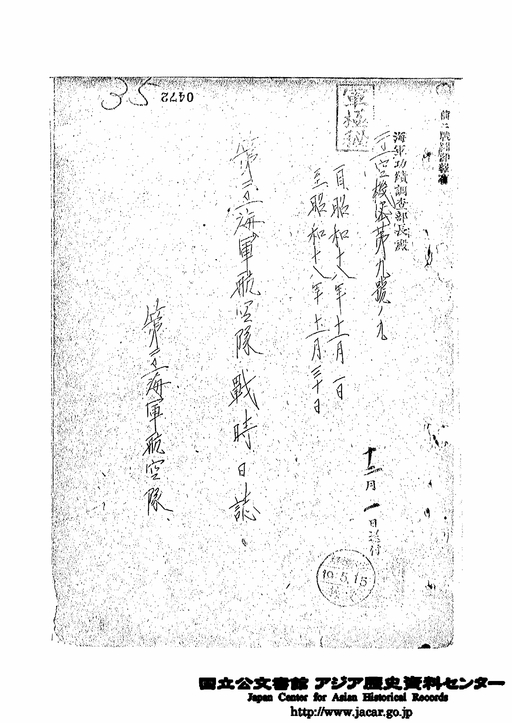 前ニ戦闘詳報
海軍功績調査部長殿
軍極秘
空機密第九號ノ九
自昭和十八年十一月一日
至昭和十八年十一月三十日
十二月一日送付
海軍航空隊戰時日誌
海軍航空隊
0472
35
19.5.15
国立公文書館 アジア歴史資料センター
Japan Center for Asian Historical Records
http://www.jacar.go.jp